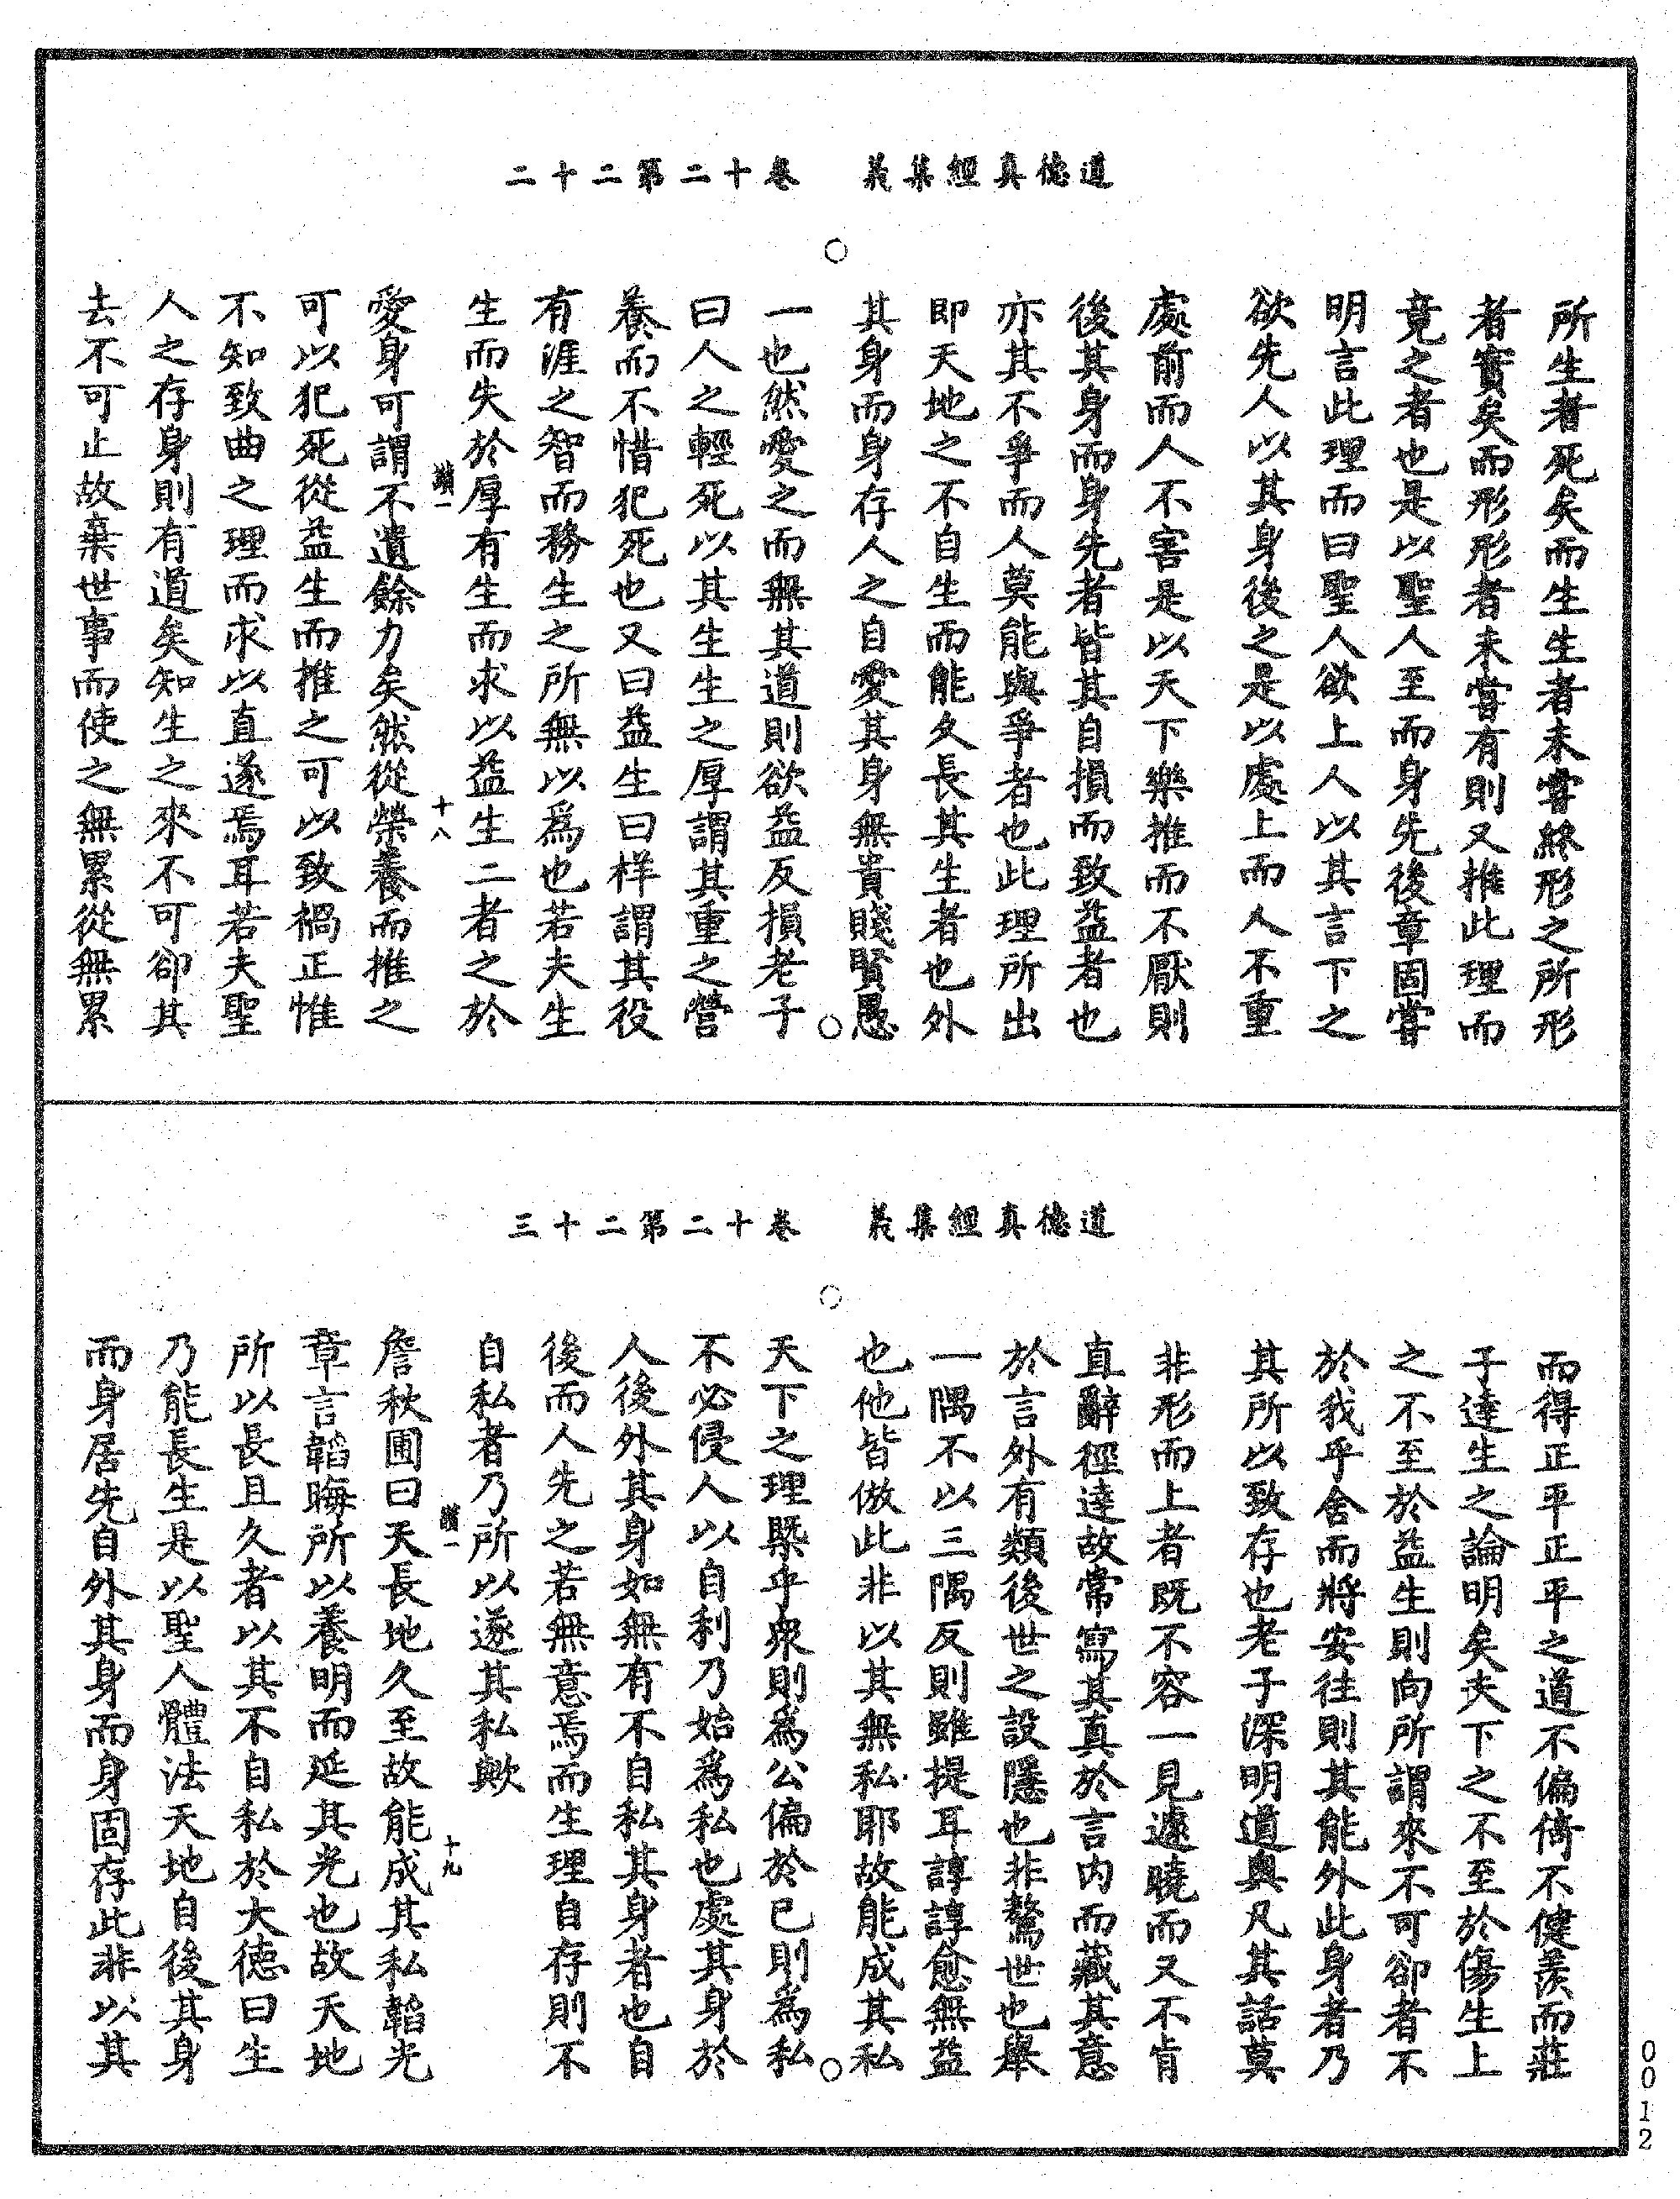 道德真經集義　卷十二第二十二
所生者死矣而生生者未嘗終形之所形
者實矣而形形者未嘗有則又推此理而
竟之者也是以聖人至而身先後章固嘗
明言此理而曰聖人欲上人以其言下之
欲先人以其身後之是以處上而人不重
處前而人不害是以天下樂推而不厭則
後其身而身先者皆其自損而致益者也
亦其不爭而人莫能與爭者也此理所出
即天地之不自生而能久長其生者也外
其身而身存人之自愛其身無貴賤賢愚
一也然愛之而無其道則欲益反損老子
曰人之輕死以其生生之厚謂其重之營
養而不惜犯死也又曰益生曰样謂其役
有涯之智而務生之所無以為也若夫生
生而失於厚有生而求以益生二者之於
十八
愛身可謂不遺餘力矣然從榮養而推之
可以犯死從益生而推之可以致禍正惟
不知致曲之理而求以直遂焉耳若夫聖
人之存身則有道矣知生之來不可卻其
去不可止故棄世事而使之無累從無累
道德真經集義　卷十二第二十三
而得正平正平之道不偏倚不健羨而莊
子達生之論明矣夫下之不至於傷生上
之不至於益生則向所謂來不可卻者不
於我乎舍而將安往則其能外此身者乃
其所以致存也老子深明道奥凡其話莫
非形而上者既不容一見遽曉而又不肯
直辭徑達故常寓其真於言内而藏其意
於言外有類後世之設隱也非驁世也舉
一隅不以三隅反則雖提耳諄諄愈無益
也他皆倣此非以其無私耶故能成其私
天下之理槩乎衆則為公偏於己則為私
不必侵人以自利乃始為私也處其身於
人後外其身如無有不自私其身者也自
後而人先之若無意焉而生理自存則不
自私者乃所以遂其私歟
十九
詹秋圃曰天長地久至故能成其私韜光
章言韜晦所以養明而延其光也故天地
所以長且久者以其不自私於大德曰生
乃能長生是以聖人體法天地自後其身
而身居先自外其身而身固存此非以其
0012